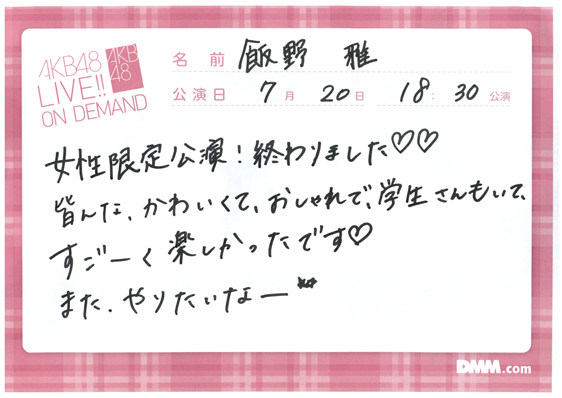 AKB48
LIVE!!
ON DEMAND
AKB
48
名前 飯野 雅
公演日 7月 20日 18:30公演
女性限定公演!終わりました♡♡
皆んな、かわいくて、おしゃれで、学生さんもいて、
すごーく楽しかったです♡
また、やりたいなー
DMM.com